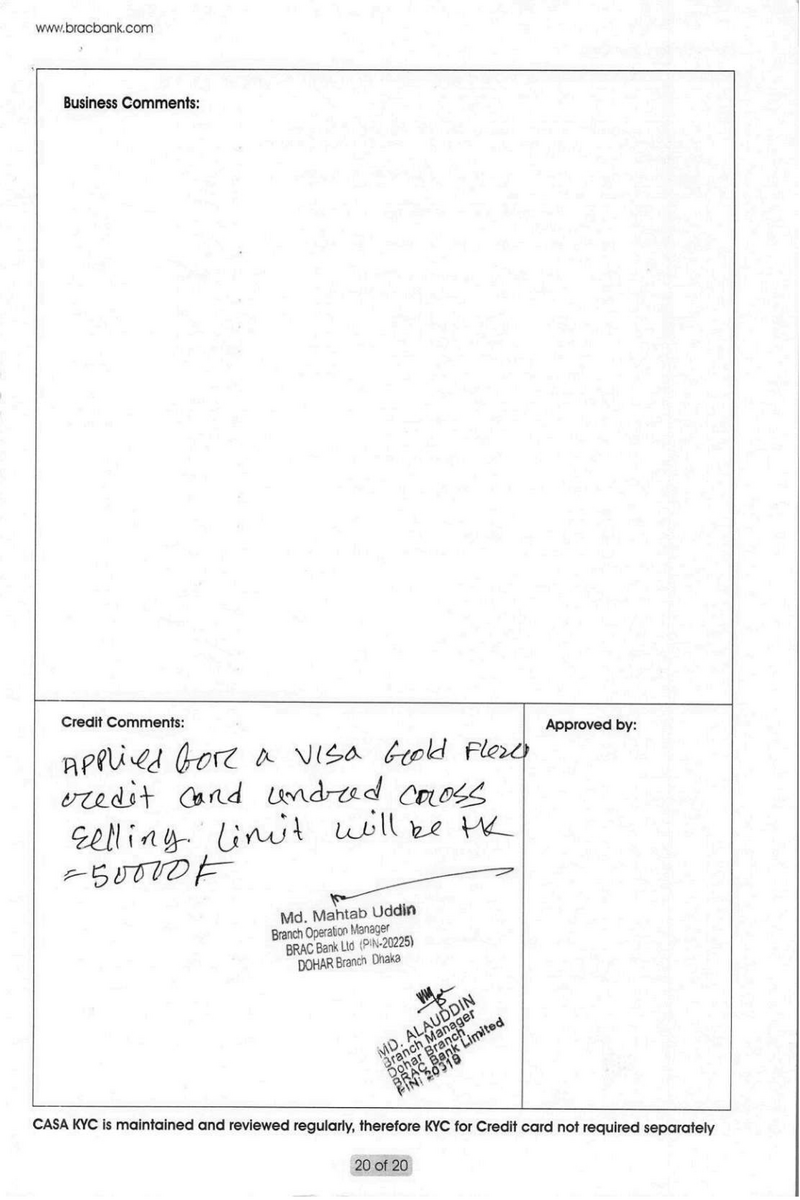 www.bracbank.com
Business Comments:
Credit Comments:
Applied fore a VISA Gold Flexi
credit card undred cross
selling. limit will be tk
=50000/-
Md. Mahtab Uddin
Branch Operation Manager
BRAC Bank Ltd (PIN-20225)
DOHAR Branch Dhaka
MD. ALAUDDIN
Branch Manager
Dohar Branch
BRAC Bank Limited
PIN: 20319
Approved by:
CASA KYC is maintained and reviewed regularly, therefore KYC for Credit card not required separately
20 of 20